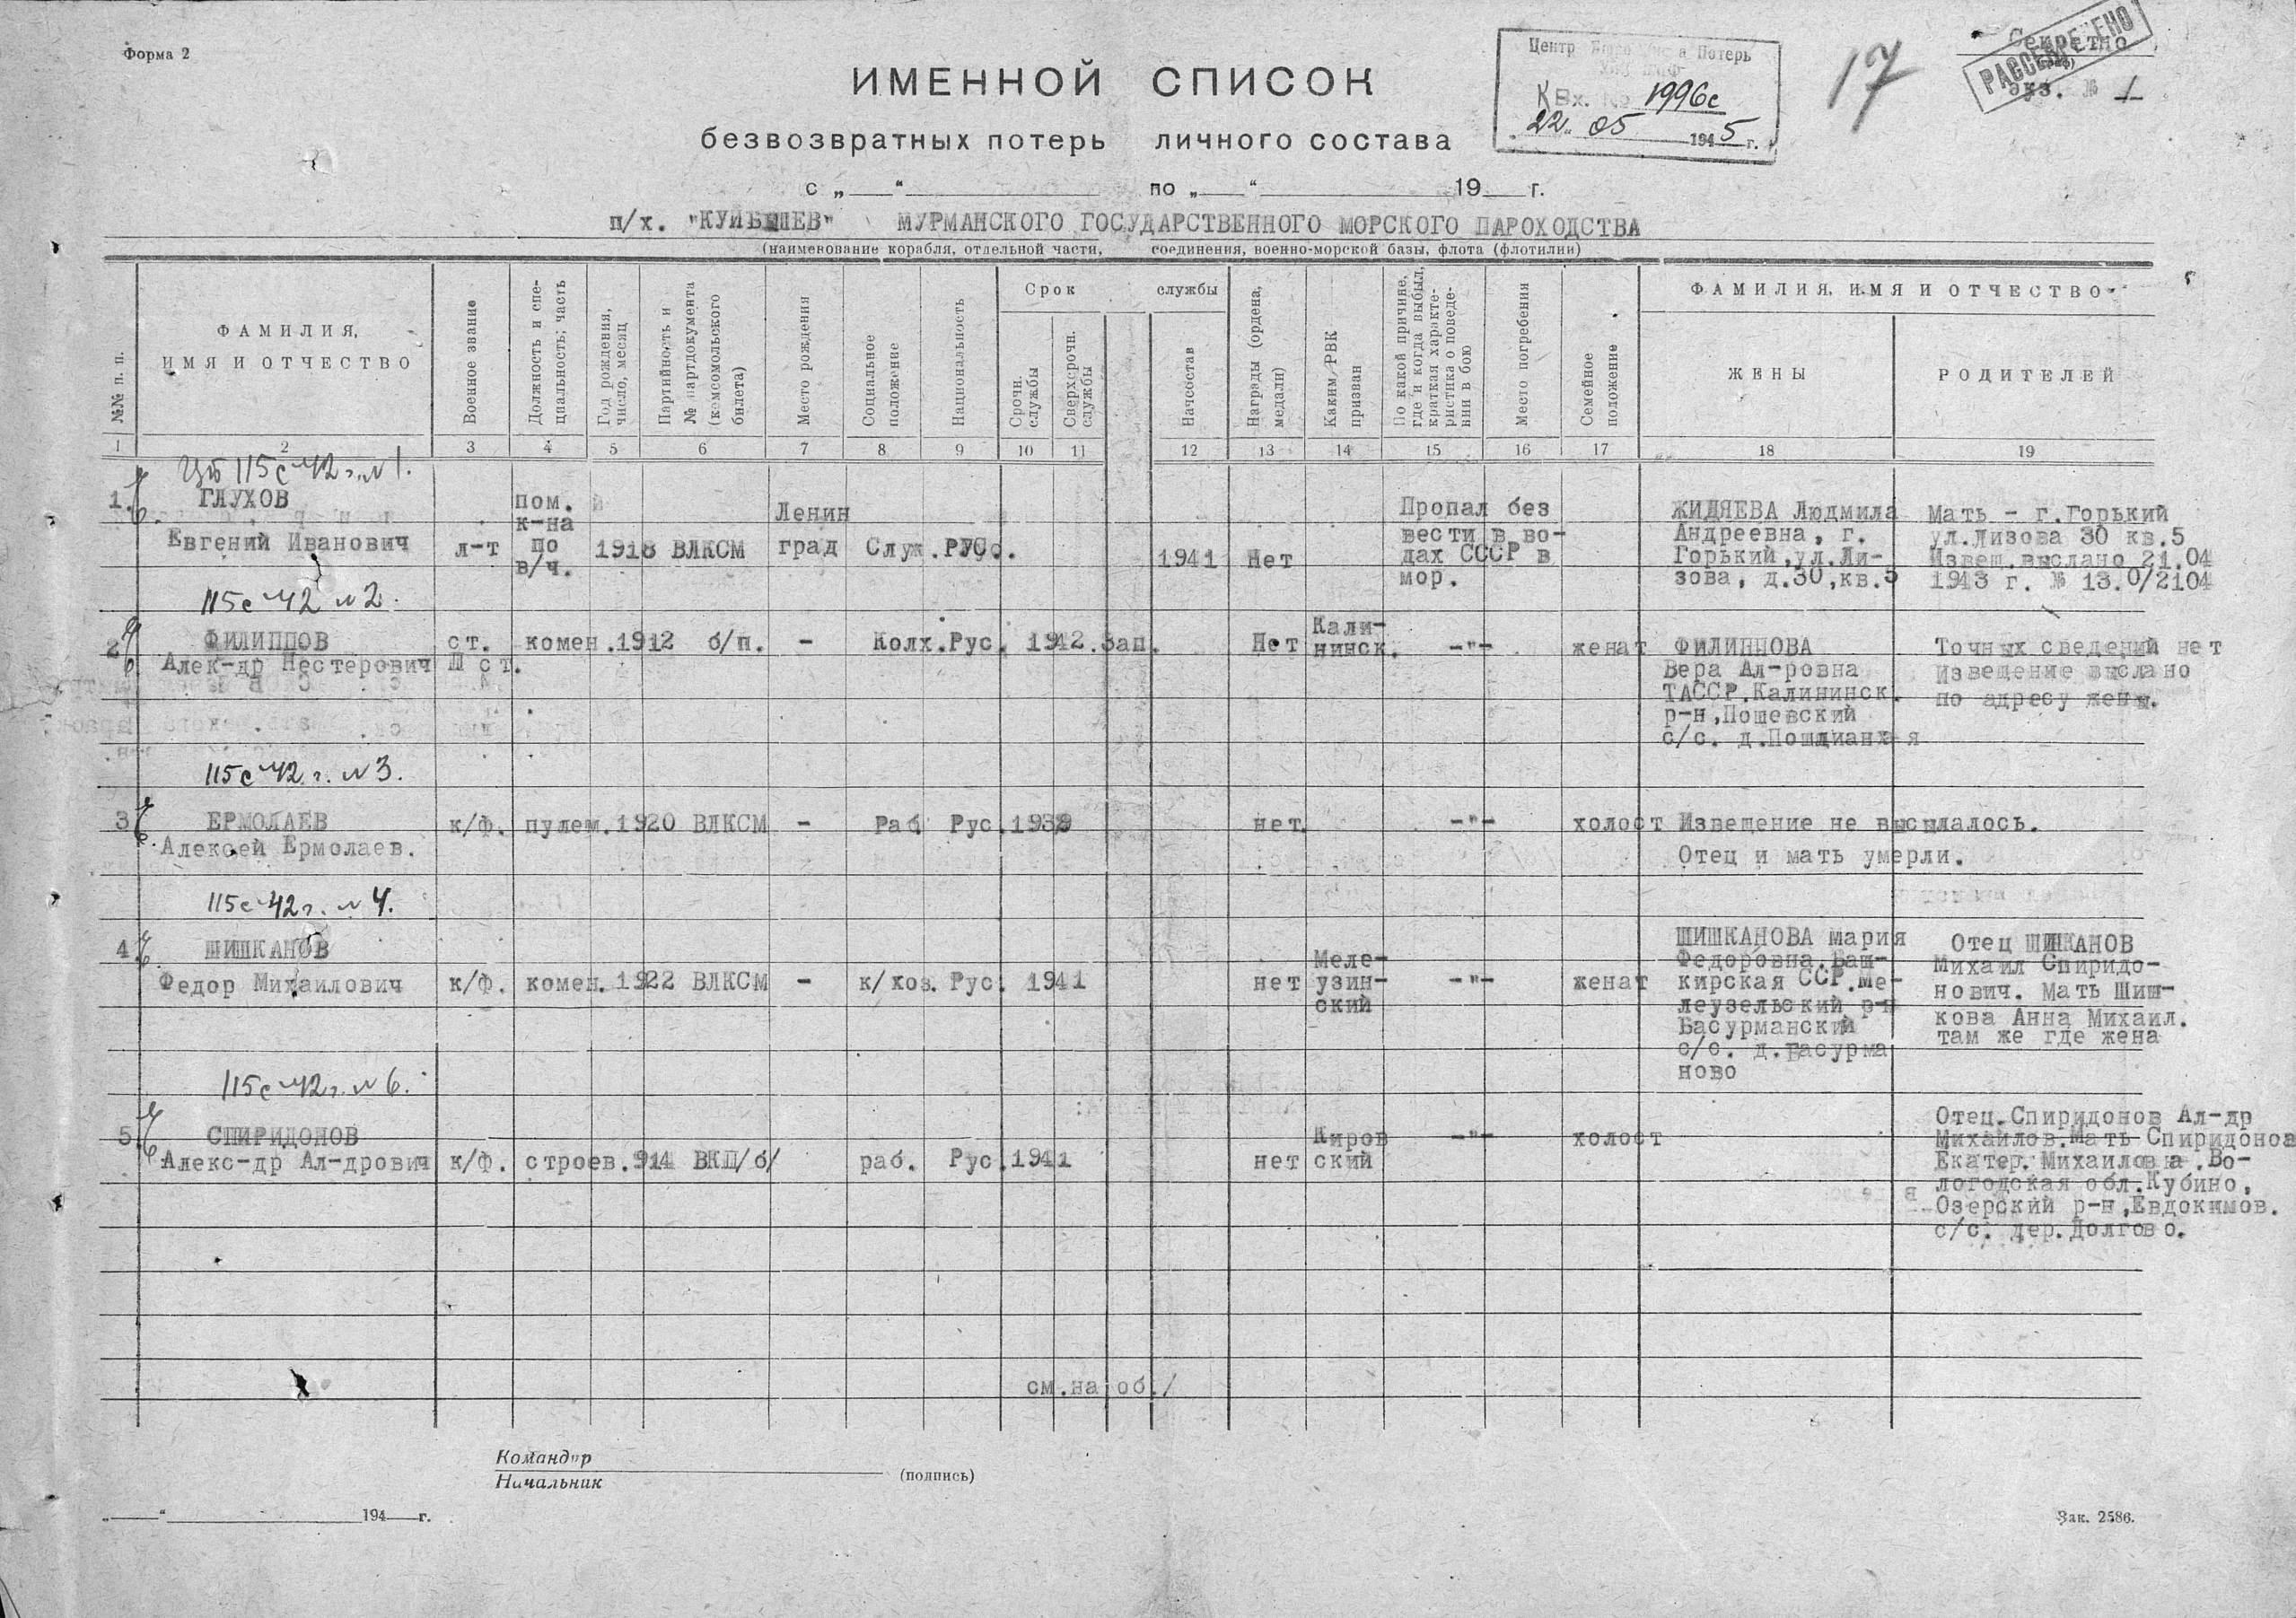 Форма 2
Центр Потерь
К Вх. № 1996с
22. 05 1945 г.
17
Секретно
РАССЕКРЕЧЕНО
экз. № 1
ИМЕННОЙ СПИСОК
безвозвратных потерь личного состава
с „ “ по „ “ 19 г.
п/х. "КУЙБЫШЕВ" МУРМАНСКОГО ГОСУДАРСТВЕННОГО МОРСКОГО ПАРОХОДСТВА
(наименование корабля, отдельной части, соединения, военно-морской базы, флота (флотилии)
№№ п. п.
ФАМИЛИЯ,
ИМЯ И ОТЧЕСТВО
Военное звание
Должность и спе-
циальность; часть
Год рождения,
число, месяц
Партийность и
№ партдокумента
(комсомольского
билета)
Место рождения
Социальное
положение
Национальность
Срок службы
Срочн.
службы
Сверхсрочн.
службы
Начсостав
Награды (ордена,
медали)
Каким РВК
призван
По какой причине,
где и когда выбыл,
краткая характе-
ристика о поведе-
нии в бою
Место погребения
Семейное
положение
ФАМИЛИЯ, ИМЯ И ОТЧЕСТВО
ЖЕНЫ
РОДИТЕЛЕЙ
1 2 3 4 5 6 7 8 9 10 11 12 13 14 15 16 17 18 19
115с 42 г. №1.
1. ГЛУХОВ
Евгений Иванович
л-т
пом.
к-на
по
в/ч.
1918 ВЛКСМ
Ленин
град
Служ. РУСс.
1941 Нет
Пропал без
вести в во-
дах СССР в
мор.
ЖИДЯЕВА Людмила
Андреевна, г.
Горький,ул.Ли-
зова, д.30,кв.5
Мать - г.Горький
ул.Лизова 30 кв.5
Извещ.выслано 21.04
1943 г. № 13.0/2104
115с 42 №2.
2 ФИЛИППОВ
Алек-др Нестерович
ст.
Ш ст.
комен. 1912 б/п. - Колх. Рус. 1942. Зап. Нет
Кали-
нинск.
-"- женат
ФИЛИППОВА
Вера Ал-ровна
ТАССР.Калининск.
р-н,Пошевский
с/с. д.Пошдианх-я
Точных сведений нет
Извещение выслано
по адресу жены.
115с 42 г. №3.
3 ЕРМОЛАЕВ
Алексей Ермолаев.
к/ф. пулем. 1920 ВЛКСМ - Раб Рус. 1939 нет. -"- холост
Извещение не высылалось.
Отец и мать умерли.
115с 42 г. №4.
4 ШИШКАНОВ
Федор Михаилович
к/ф. комен. 1922 ВЛКСМ - к/хоз. Рус. 1941 нет
Меле-
узин-
ский
-"- женат
ШИШКАНОВА мария
Федоровна.Баш-
кирская ССР.ме-
леузельский р-н
Басурманский
с/с. д.Басурма
ново
Отец ШИШКАНОВ
Михаил Спиридо-
нович. Мать Шиш-
кова Анна Михаил.
там же где жена
115с 42 г. №6.
5. СПИРИДОНОВ
Алекс-др Ал-дрович
к/ф. строев. 914 ВКП/б/ раб. Рус. 1941 нет
Киров
ский
-"- холост
Отец.Спиридонов Ал-др
Михайлов.Мать Спиридонов
Екатер.Михаиловна.Во-
логодская обл.Кубино,
Озерский р-н,Евдокимов.
с/с. дер.Долгово.
см.на об./
Командир
Начальник
(подпись)
„ “ 194 г.
Зак. 2586.